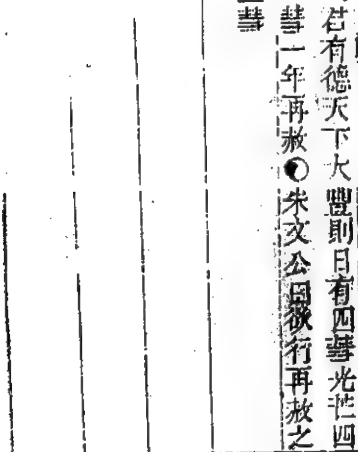 君有德天下大豐則日有四彗光芒四
彗一年再赦朱文公曰欲行再赦之
彗